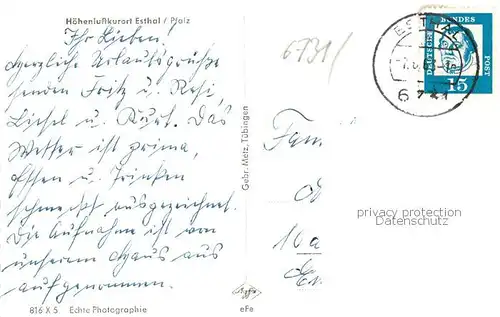 Höhenluftkurort Esthal / Pfalz
Ihr Lieben!
Herzliche Urlaubsgrüße
senden Fritz u. Resi,
Liesel u. Kurt. Das
Wetter ist prima,
Essen u. Trinken
schmeckt ausgezeichnet.
Die Aufnahme ist von
unserem Haus aus
aufgenommen.
816 X 5 Echte Photographie
Gebr. Metz, Tübingen
eFe
6731/
ESTHAL
6731
DEUTSCHE
BUNDES
POST
15
Fam
10a
privacy protection
www.